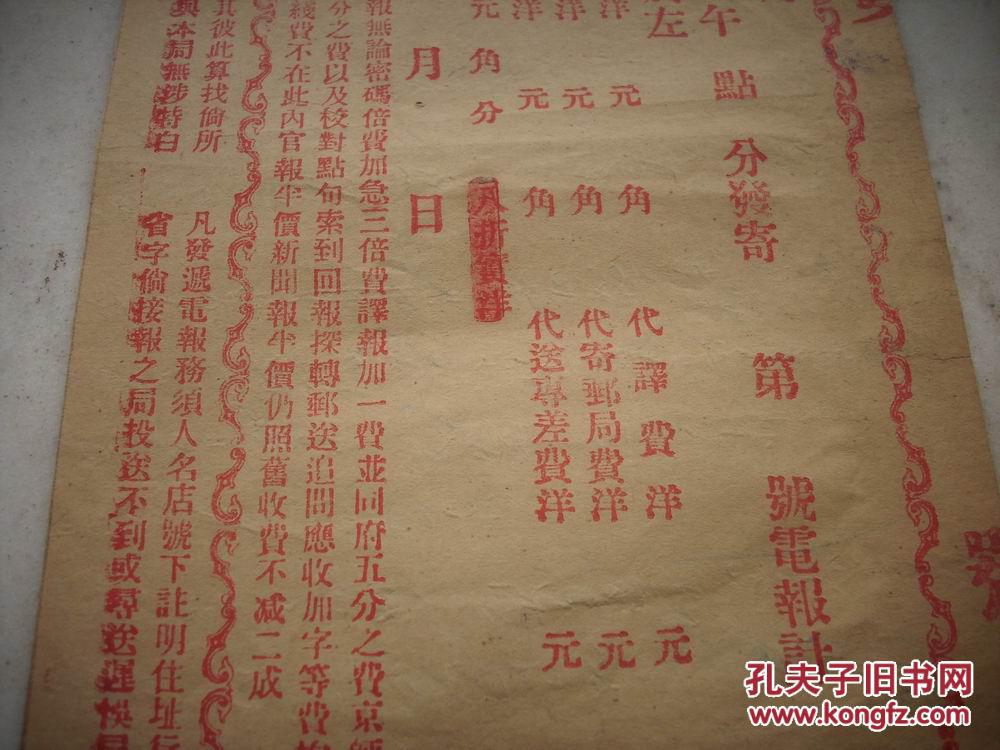 號
午點分發寄 第 號電報計
左
洋元角 代譯費洋 元
洋元角 代寄郵局費洋 元
洋元角 代送專差費洋 元
元角分
月 日
報無論密碼倍費加急三倍費譯報加一費並同府五分之費京
分之費以及校對點句索到回報探轉郵送追問應收加字等費
綫費不在此內官報半價新聞報半價仍照舊收費不減二成
其彼此算找倘所
與本局無涉特白
凡發遞電報務須人名店號下註明住址行
省字倘接報之局投送不到或尋送遲悞
孔夫子旧书网
www.kongfz.com